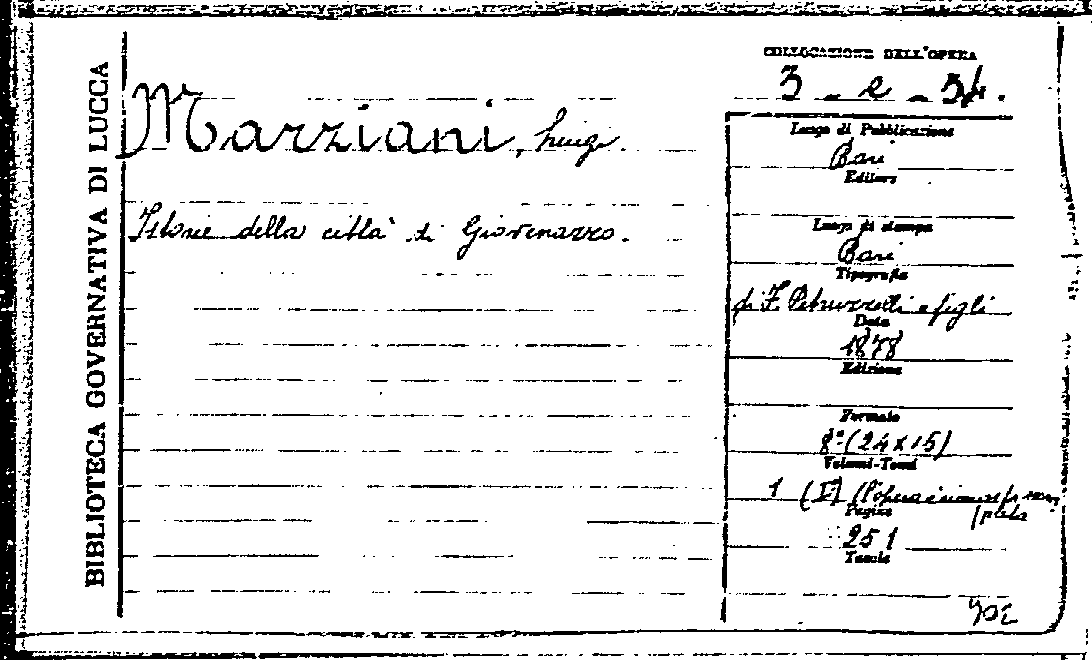 BIBLIOTECA GOVERNATIVA DI LUCCA
COLLOCAZIONE DELL'OPERA
3 - e - 34.
Marziani, Luigi.
Istorie della città di Giovenazzo.
Luogo di Pubblicazione
Bari
Editore
Luogo di stampa
Bari
Tipografia
di F. Petruzzelli e figli
Data
1878
Edizione
Formato
8° (24x15)
Volumi-Tomi
1 (I) (l'opera è
Pagine
251
Tavole
702